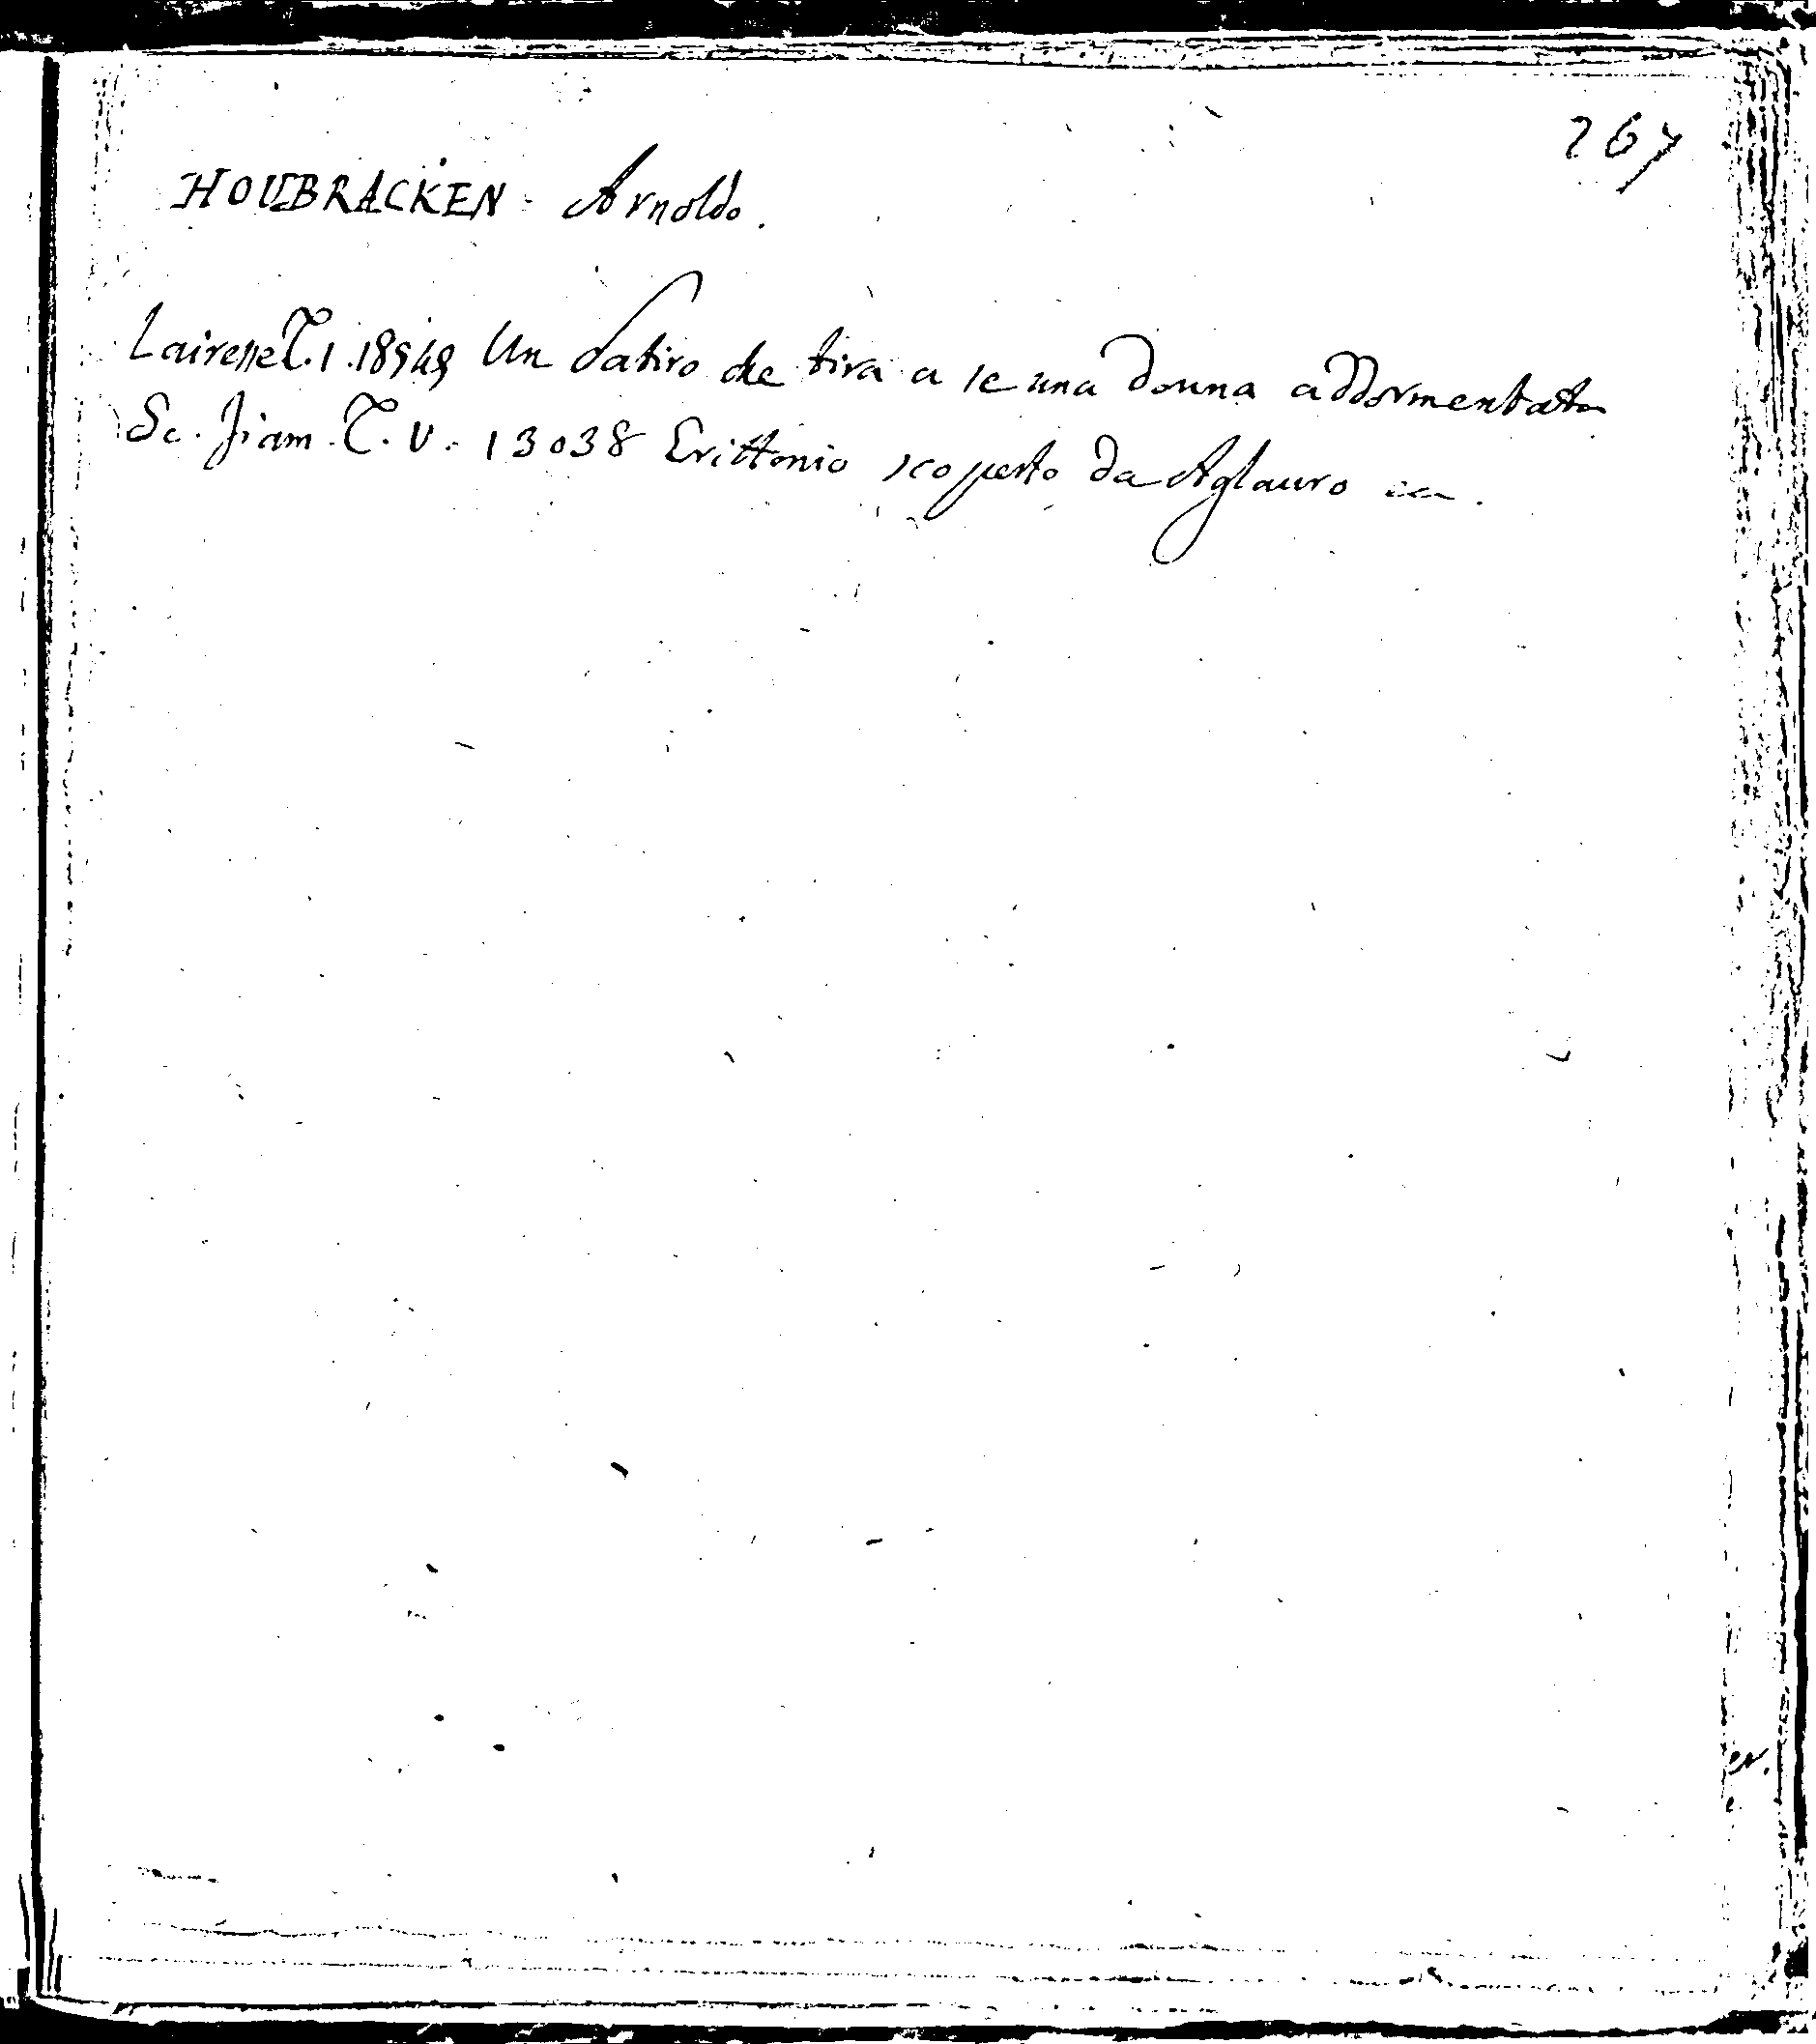 267
HOUBRACKEN Arnoldo.
Lairesse T. 1. 18549 Un Satiro che tira a se una donna addormentata
Sc. Fiam. T. V. 13038 Erittonio scoperto da Aglauro